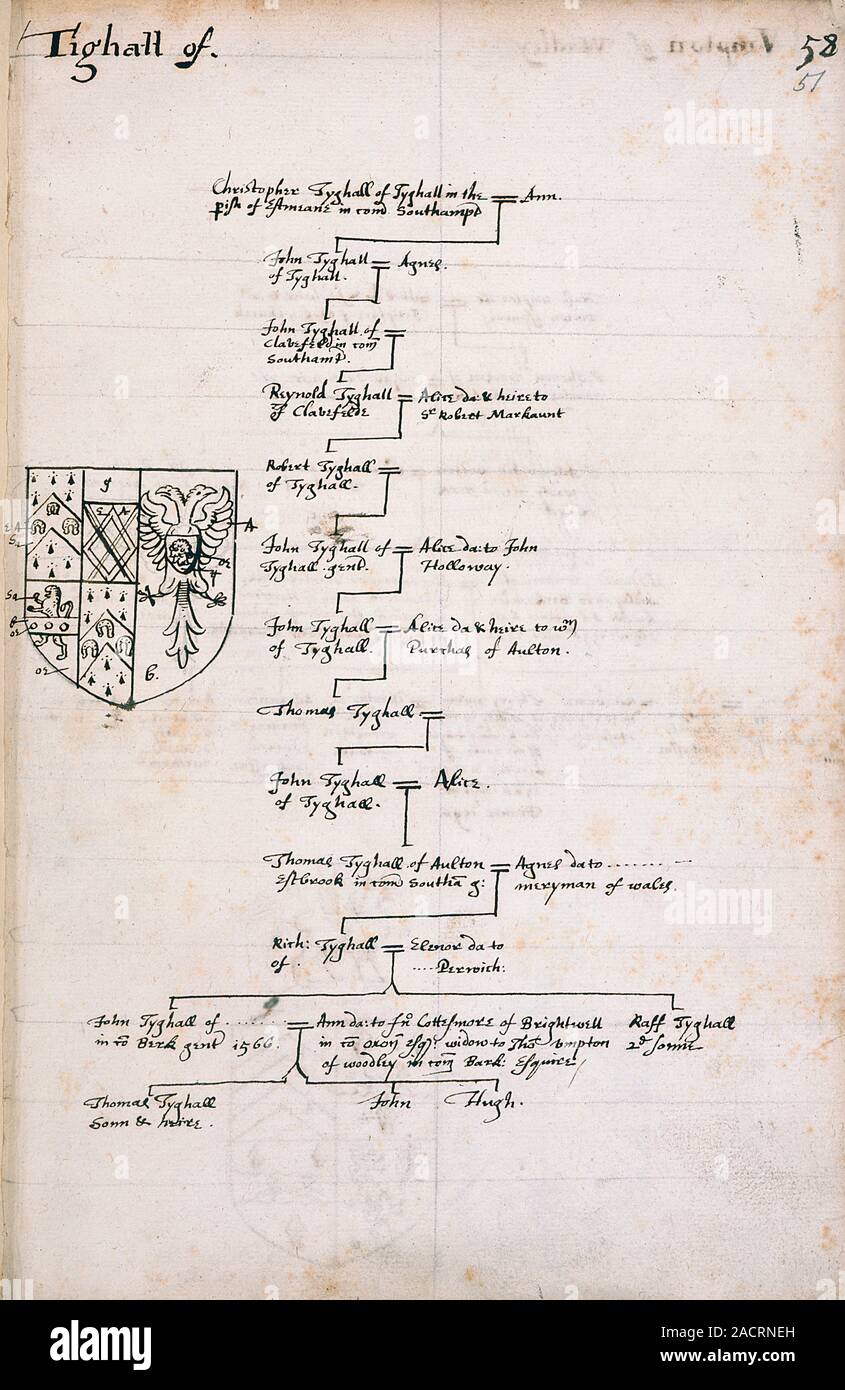 Tighall of.
58
51
Christopher Tyghall of Tyghall in the = Ann.
pish of Estmeane in com Southampd
John Tyghall = Agnes.
of Tyghall.
John Tyghall of =
Clavefeld in com
Southamp.
Reynold Tyghall = Alice da & heire to
of Clavefelde Sr Robert Markaunt
Robert Tyghall =
of Tyghall.
John Tyghall of = Alice da: to John
Tyghall gent. Holloway.
John Tyghall = Alice da & heire to wm
of Tyghall. Purchas of Aulton.
Thomas Tyghall =
John Tyghall = Alice.
of Tyghall.
Thomas Tyghall of Aulton = Agnes da to ........
Estbrook in com Southa g: meryman of wales.
Rich: Tyghall = Elenor da to
of . .... Perwich:
John Tyghall of ........ = Ann da: to Jno Cottesmore of Brightwell Raff Tyghall
in co Berk gent 1566. in co oxon esqr: widow to Thos vmpton 2d sonne
of woodley in com Bark: Esquire
Thomas Tyghall John Hugh.
Sonn & heire.
g
E A
A
Sa
or
Sa
or
or
b.
alamy
alamy
Image ID: 2ACRNEH
www.alamy.com